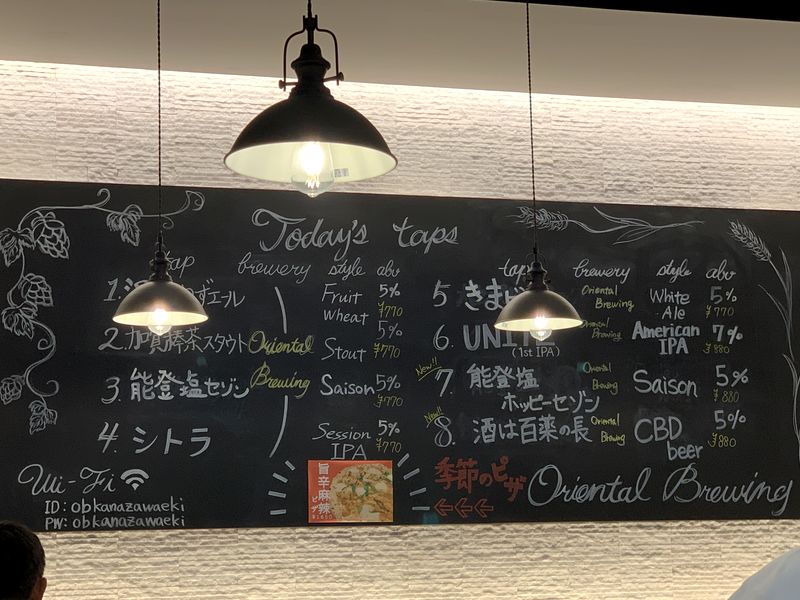 Today's taps
tap brewery style abv
1. ずエール Fruit Wheat 5% ¥770
2. 加賀棒茶スタウト Stout 5% ¥770
3. 能登塩セゾン Saison 5% ¥770
4. シトラ Session IPA 5% ¥770
Oriental Brewing
tap brewery style abv
5. きま Oriental Brewing White Ale 5% ¥770
6. UNITE (1st IPA) Oriental Brewing American IPA 7% ¥880
New!! 7. 能登塩 ホッピーセゾン Oriental Brewing Saison 5% ¥880
New!! 8. 酒は百薬の長 Oriental Brewing CBD beer 5% ¥880
Wi-Fi
ID: obkanazawaeki
PW: obkanazawaeki
旨辛麻辣ピザ
季節のピザ
Oriental Brewing